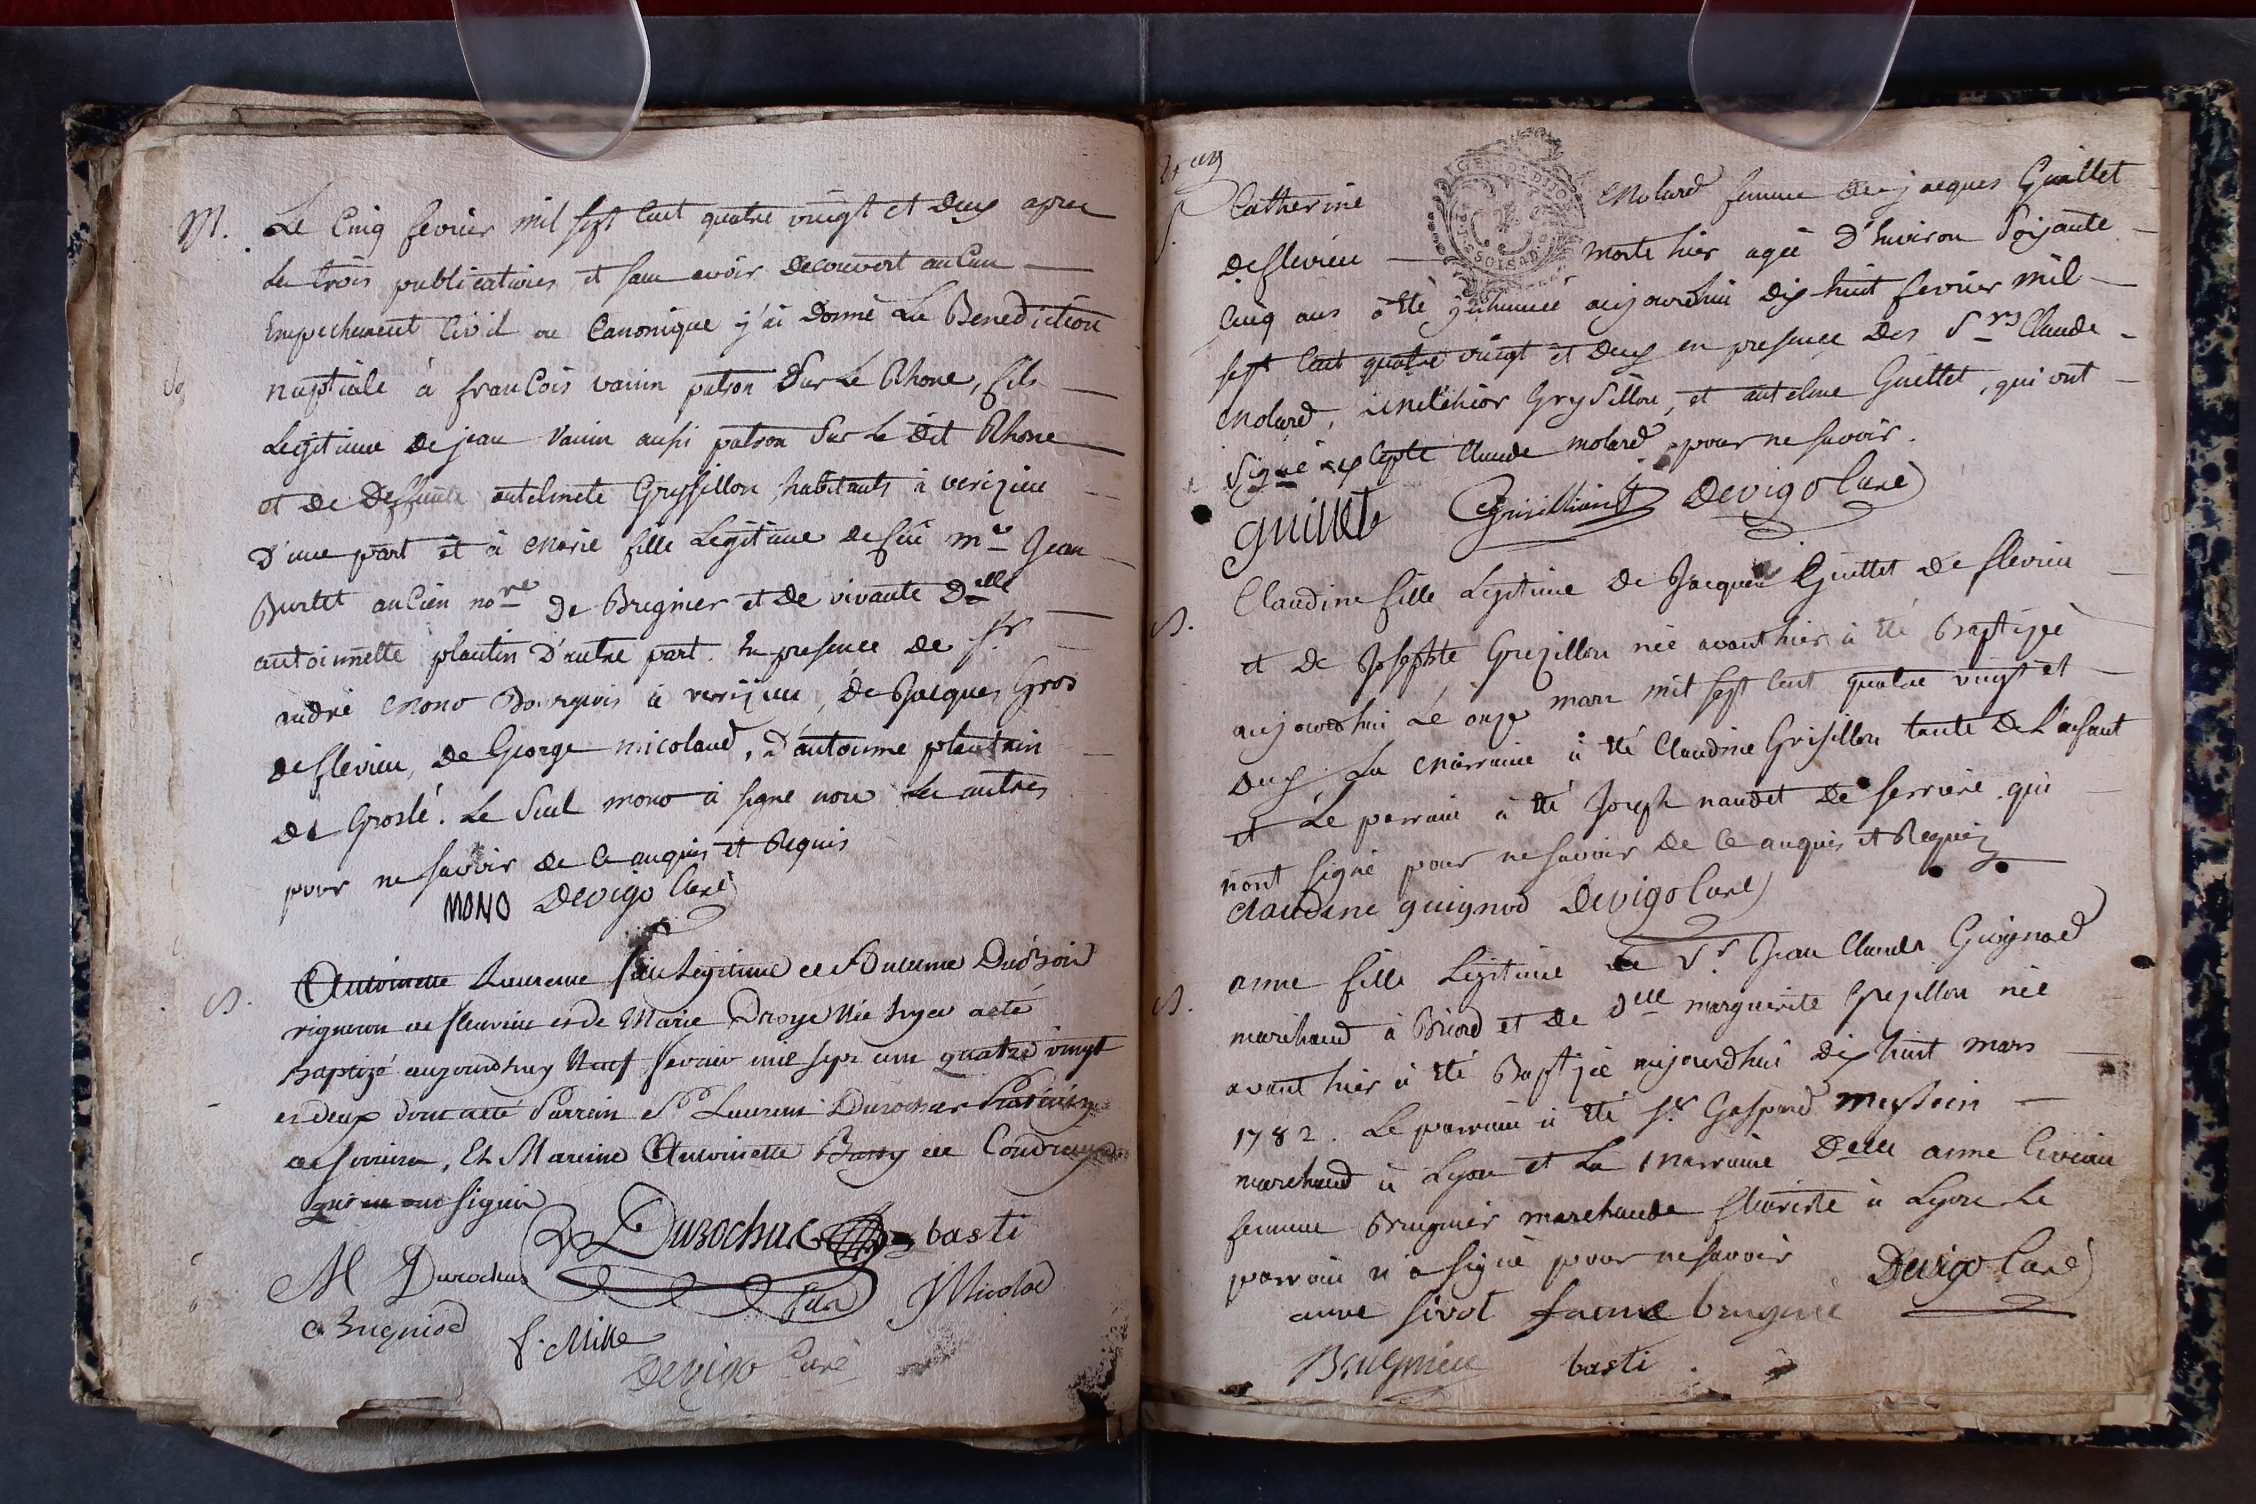 M. Le Cinq fevrier mil sept cent quatre vingt et deux apres
les trois publications et sans avoir decouvert aucun
Empechement Civil ou Canonique j'ai donné La Benediction
nuptiale à francois vanin patron Sur Le Rhone, fils
Legitime de jean Vanin aussi patron Sur Le dit Rhone
et de deffunte antelmete Gryssillon habitants à verizieu
D'une part et à Marie fille Legitime de feu Me Jean
Burtet ancien nore de Bregnier et de vivante Delle
antoinette plantin D'autre part. En presence de Sr
andré Mono Bourgeois à verizieu, de Jacques Gros
de flevieu, de George micoland, d'antoinne plantain
de Groslé. Le Seul mono a signé non les autres
pour ne savoir de ce enquis et Requis
MONO Devigo Curé
B. Antoinette Laurence fille Legitime de Antoinne Dubois
vigneron de fleurieu et de Marie Droye Née hyer a été
Baptizé aujourdhuy Neuf fevrier mil sept cent quatre vingt
et deux dont a été Parrain Sr Laurent Durochat
de serriere, Et Marinne Antoinette Basty de
qui ont signé
Durochat basti
M Durochat fils J Micolod
C Bugniod f. Mille
Devigo Curé
S. Catherine Molard femme de jacques Guillet
de flevieu morte hier agée d'Environ Soixante
Cinq ans a été inhumée aujourdhui dix huit fevrier mil
sept Cent quatre vingt et deux en presence des Srs Claude
Molard, Melchior Grysillon, et antelme Guillet, qui ont
Signé excepté Claude molard pour ne savoir.
guillet Devigo Curé
B. Claudine fille Legitime de Jacques Guillet de flevieu
et de Josephte Grezillon née avant hier à été Baptizée
aujourdhui Le onze mars mil sept Cent quatre vingt et
deux, La Marraine à été Claudine Grisillon tante de L'enfant
et Le parrain à été Joseph naudet de serriere qui
n'ont signé pour ne savoir de ce enquis et Requis
claudine guignod Devigo Curé
B. anne fille Legitime de Sr Jean Claude Guignod
marchand à Briord et de Delle marguerite Grezillon née
avant hier à été Baptizée aujourdhui dix huit mars
1782. Le parrain à été Sr Gaspard
marchand à Lyon et La Marraine Delle anne
femme Brugnier marchande à Lyon Le
parrain n'a signé pour ne savoir Devigo Curé
anne sivot brugnie
Brugnier basti